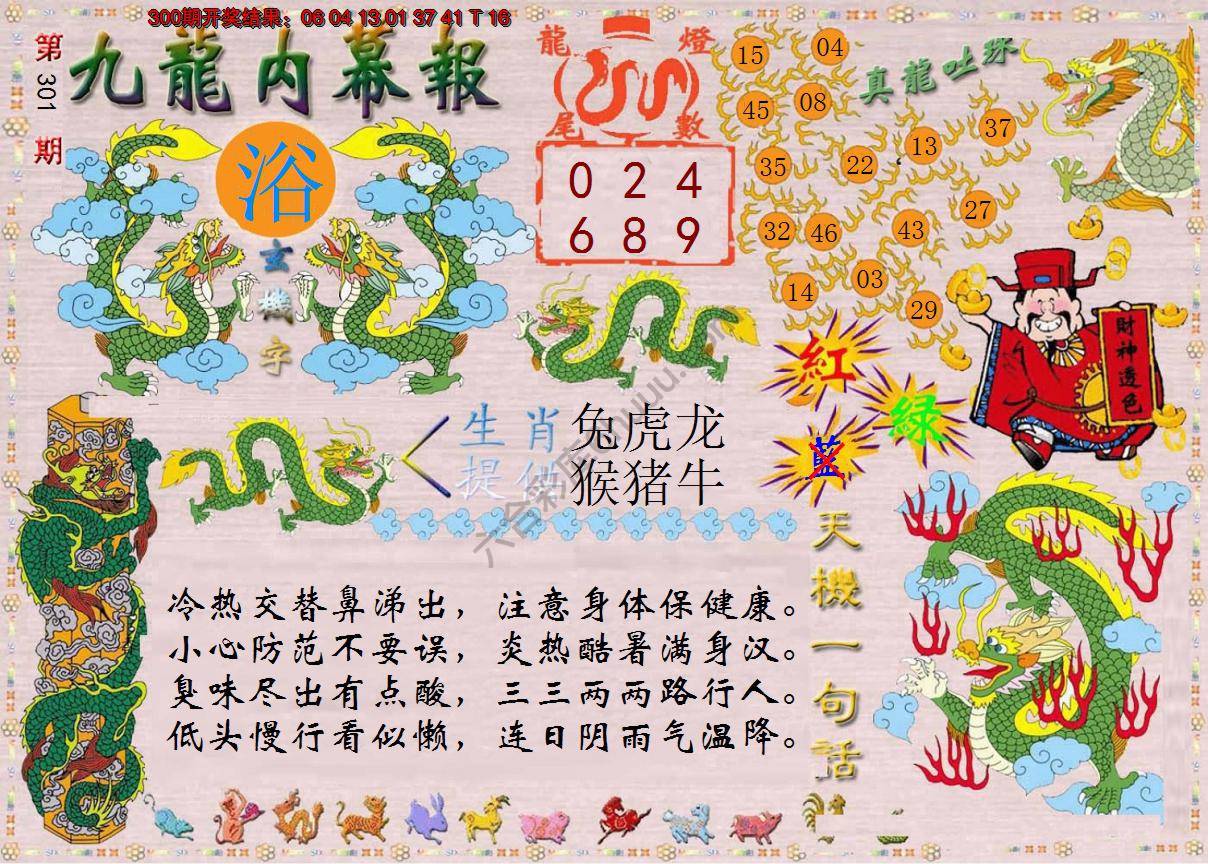 300期开奖结果：06 04 13 01 37 41 T 16
第301期
九龍内幕報
浴
玄機字
龍燈
尾數
0 2 4
6 8 9
真龍吐珠
15 04
45 08
13 37
35 22
27
32 46 43
14 03
29
財神透色
紅
綠
藍
生肖 兔虎龙
提供 猴猪牛
天機一句話
冷热交替鼻涕出，注意身体保健康。
小心防范不要误，炎热酷暑满身汉。
臭味尽出有点酸，三三两两路行人。
低头慢行看似懒，连日阴雨气温降。